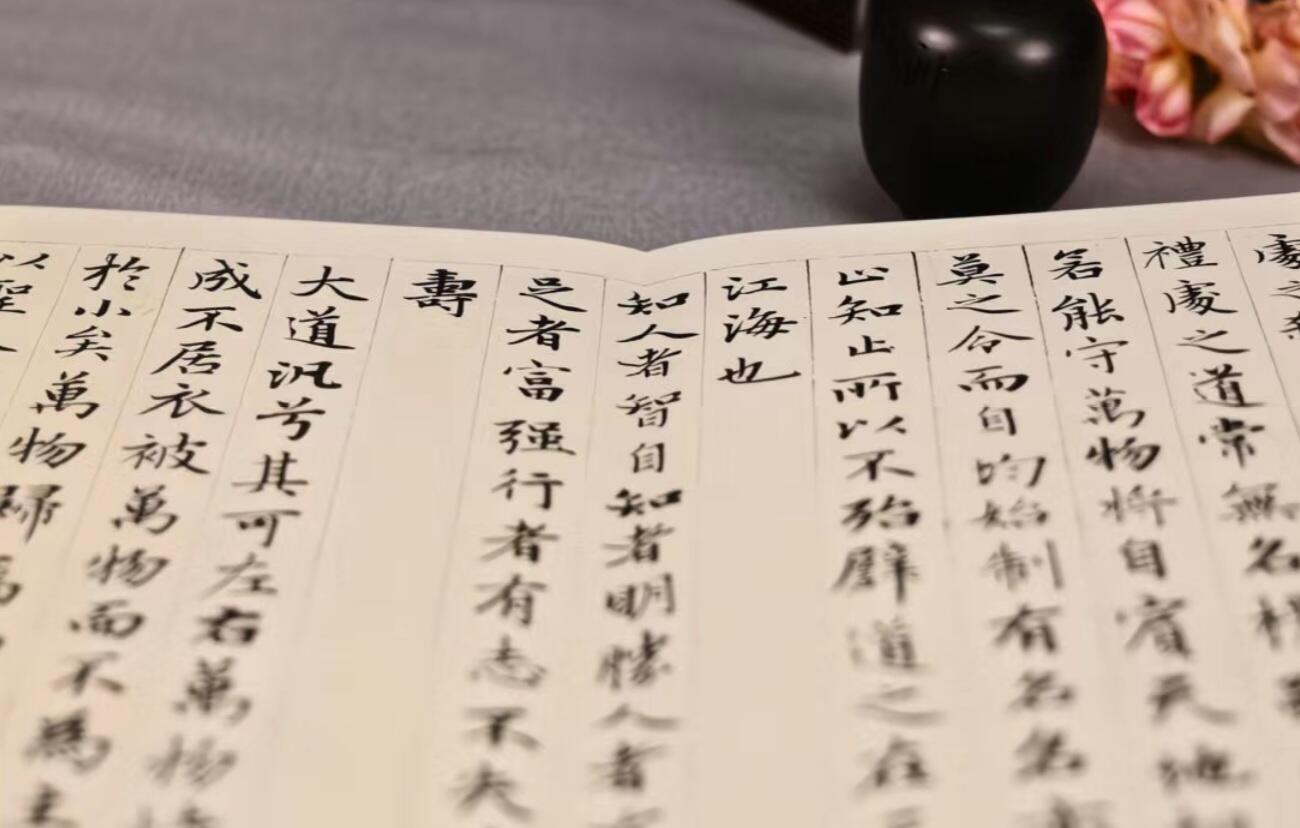 處之
禮處之道常無名樸
若能守萬物將自賓天地
莫之令而自均始制有名名亦
止知止所以不殆辟道之在
江海也
知人者智自知者明勝人者有
足者富强行者有志不失
壽
大道汎兮其可左右萬物恃
成不居衣被萬物而不為主
於小矣萬物歸焉
以聖人